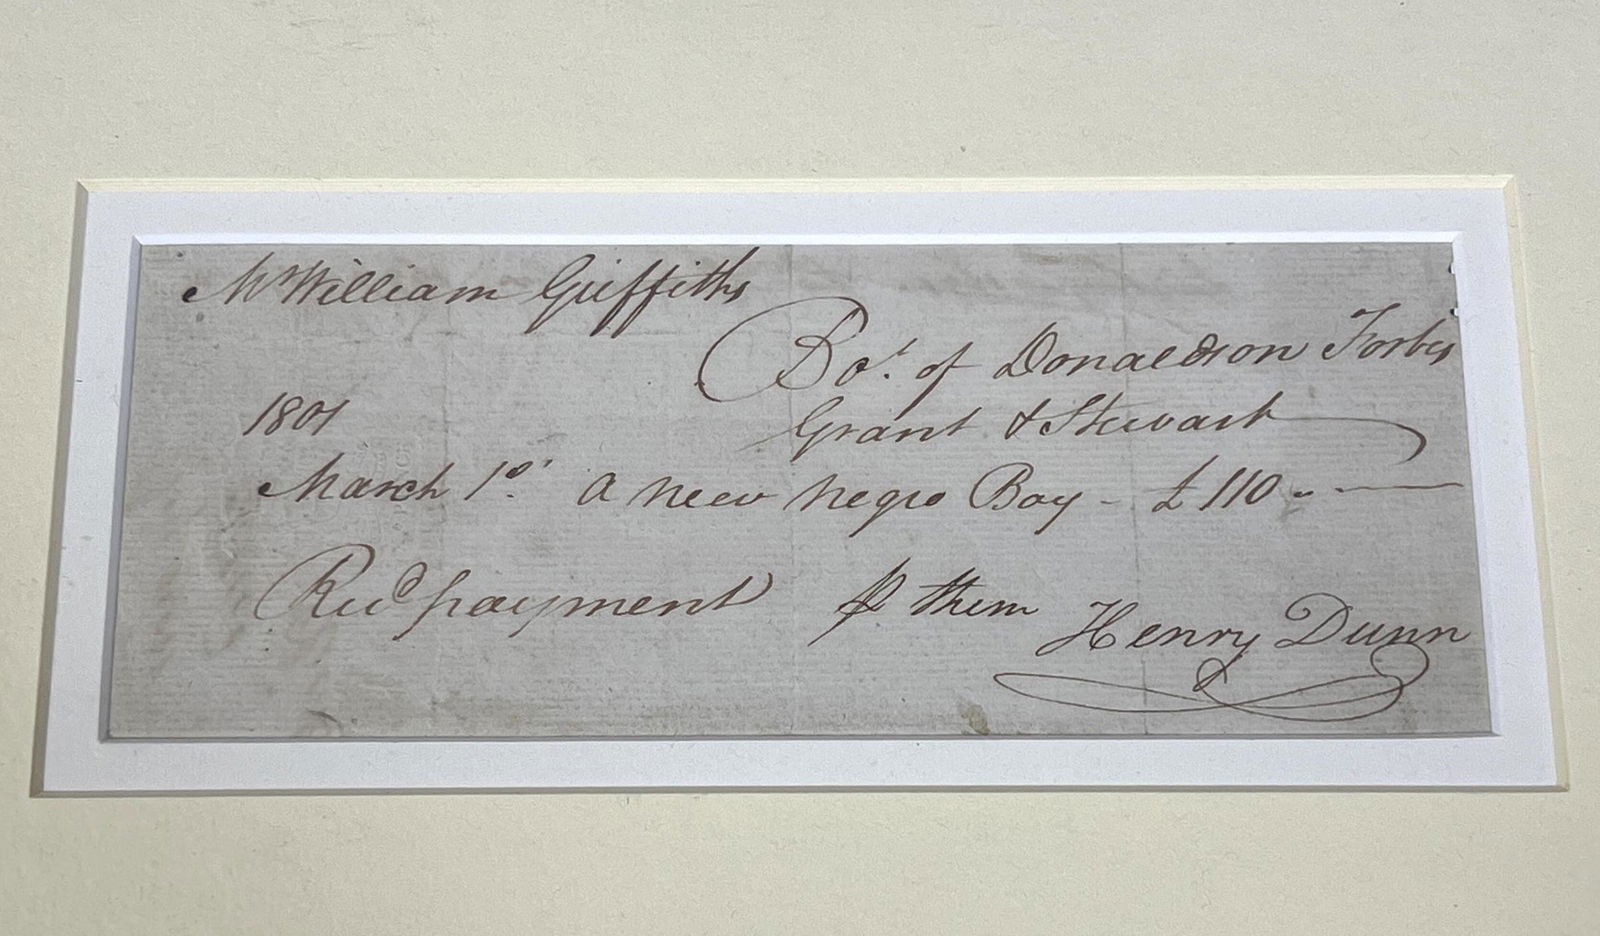 Mr William Griffiths
Bot. of Donaldson Forbes
Grant & Stewart
1801
March 1o. A new negro Boy - £110 " -
Recd payment
⅌ them
Henry Dunn